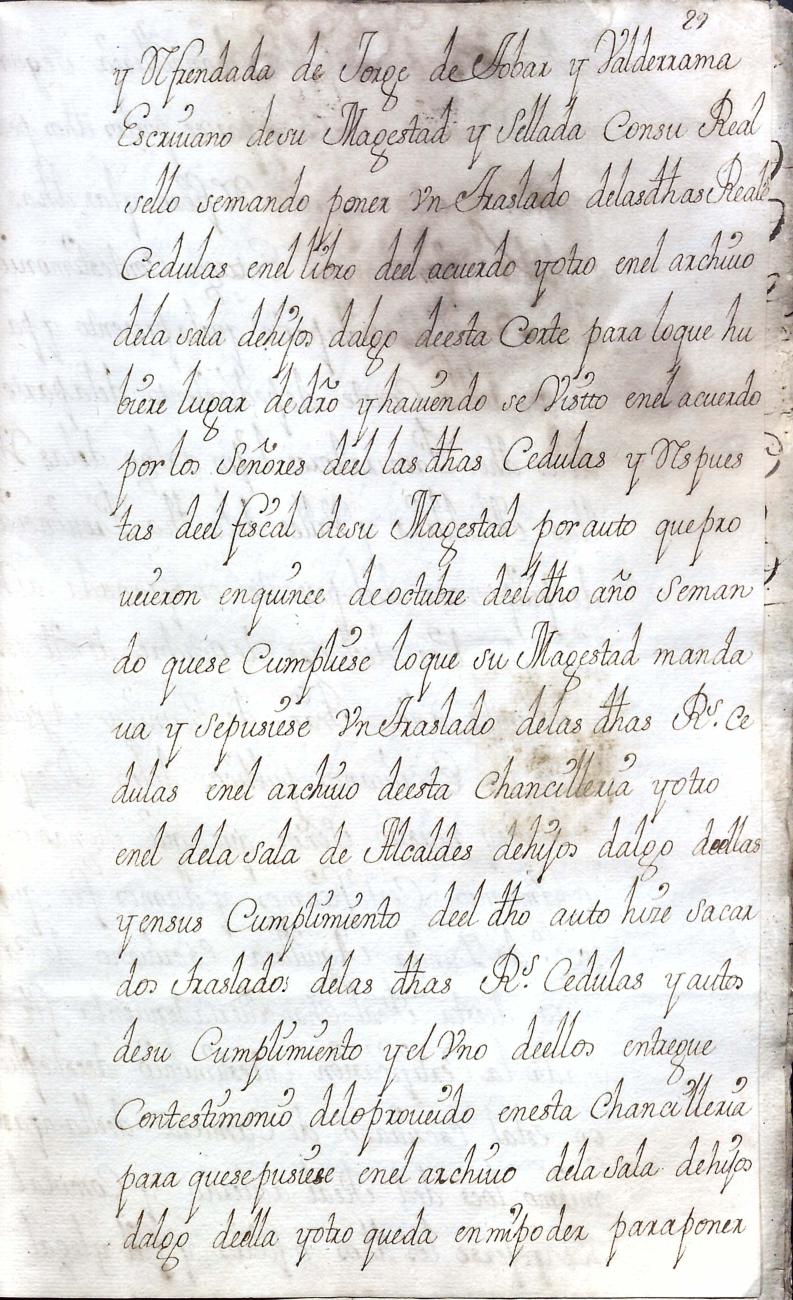 29
y Rfrendada de Jorge de Tobar y Valderrama
Escriuano de su Magestad y Sellada Con su Real
sello se mando poner Vn traslado delas dhas Reales
Cedulas enel libro deel acuerdo y otro enel archiuo
dela sala dehijos dalgo deesta Corte para lo que hu
biere lugar de dro y hauiendo se Vistto enel acuerdo
por los Señores deel las dhas Cedulas y Rspues
tas deel fiscal desu Magestad por auto que pro
ueieron en quince de octubre deel dho año Se man
do que se Cumpliese lo que su Magestad manda
ua y se pusiese Vn traslado delas dhas Rs. Ce
dulas enel archiuo deesta Chancilleria y otro
enel dela sala de Alcaldes dehijos dalgo deellas
y en sus Cumplimiento deel dho auto hize sacar
dos traslados delas dhas Rs. Cedulas y autos
desu Cumplimiento y el Vno deellos entregue
Con testimonio delo proueido en esta Chancilleria
para que se pusiese enel archiuo dela sala dehijos
dalgo deella y otro queda en mi poder para poner